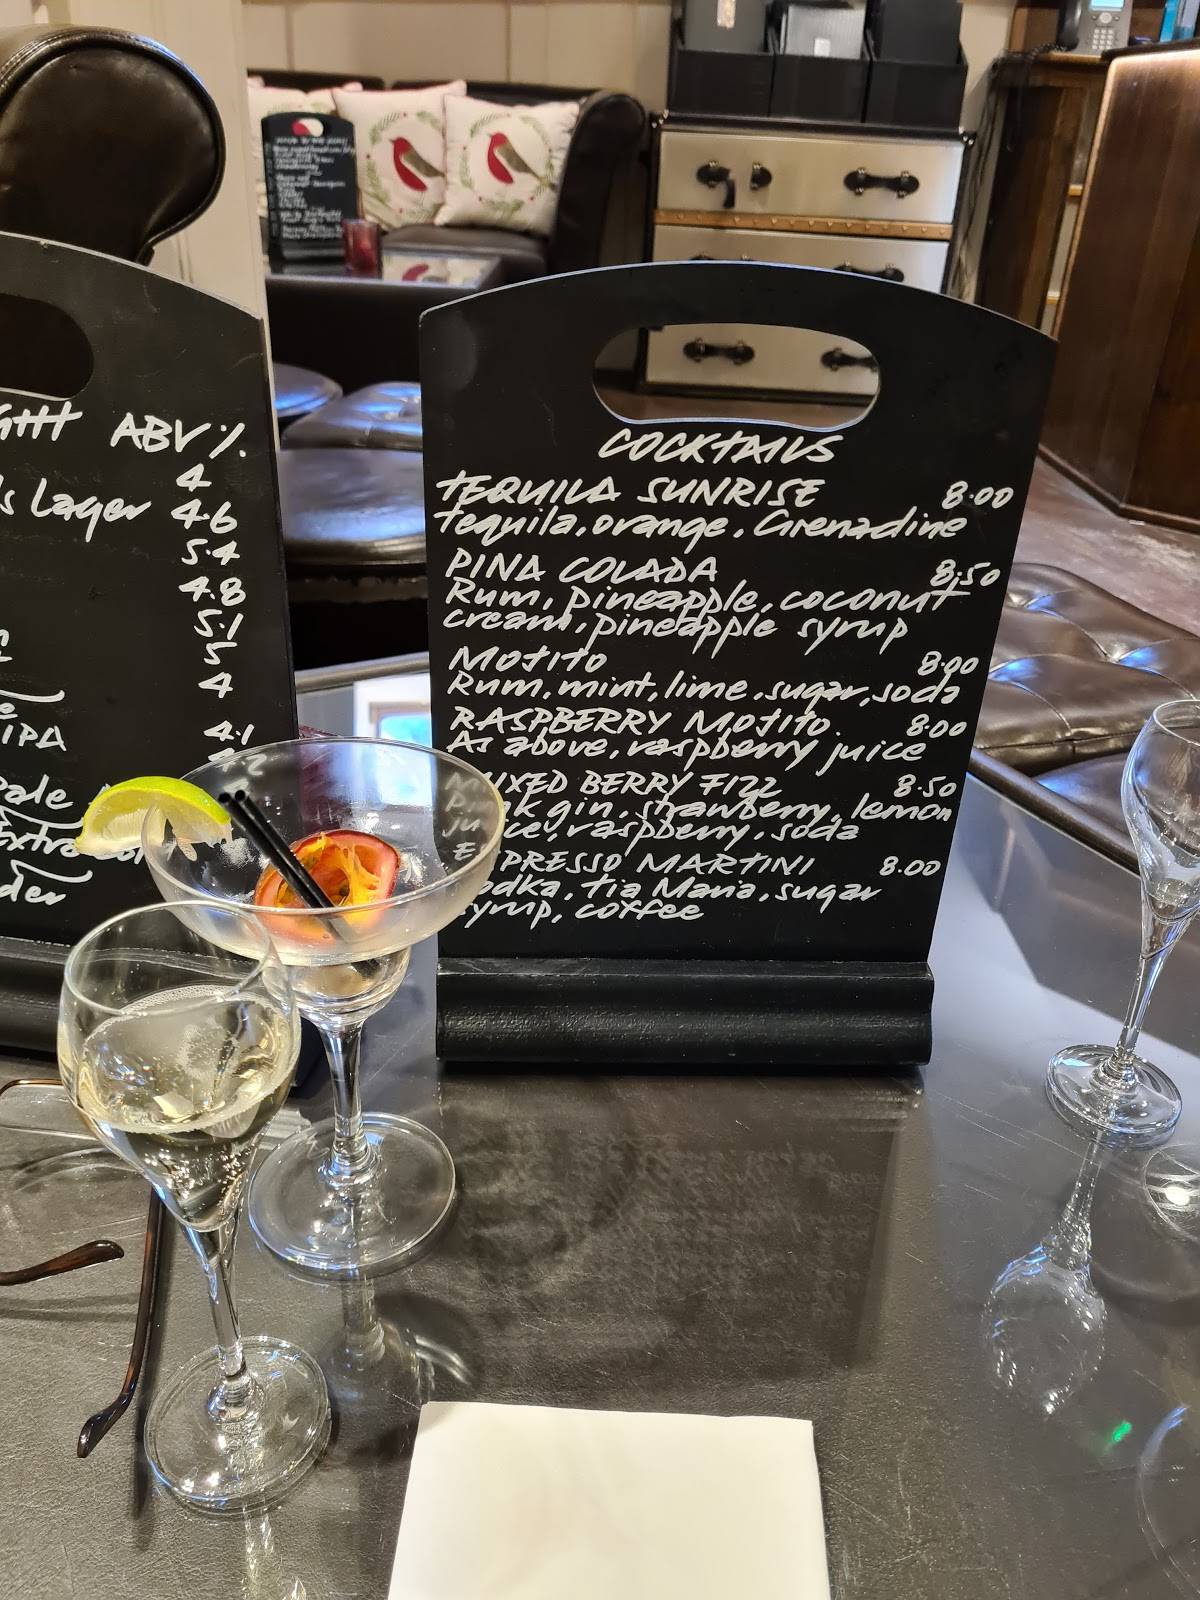 ABV %
4
s Lager 4.6
5.4
4.8
5.1
5
4
IPA 4.1
4.2
Pale
Extra
der
COCKTAILS
TEQUILA SUNRISE 8.00
Tequila, orange, Grenadine
PINA COLADA 8.50
Rum, pineapple, coconut
cream, pineapple syrup
MOJITO 8.00
Rum, mint, lime, sugar, soda
RASPBERRY MOJITO. 8.00
As above, raspberry juice
MIXED BERRY FIZZ 8.50
Pink gin, strawberry, lemon
juice, raspberry, soda
ESPRESSO MARTINI 8.00
Vodka, Tia Maria, sugar
syrup, coffee